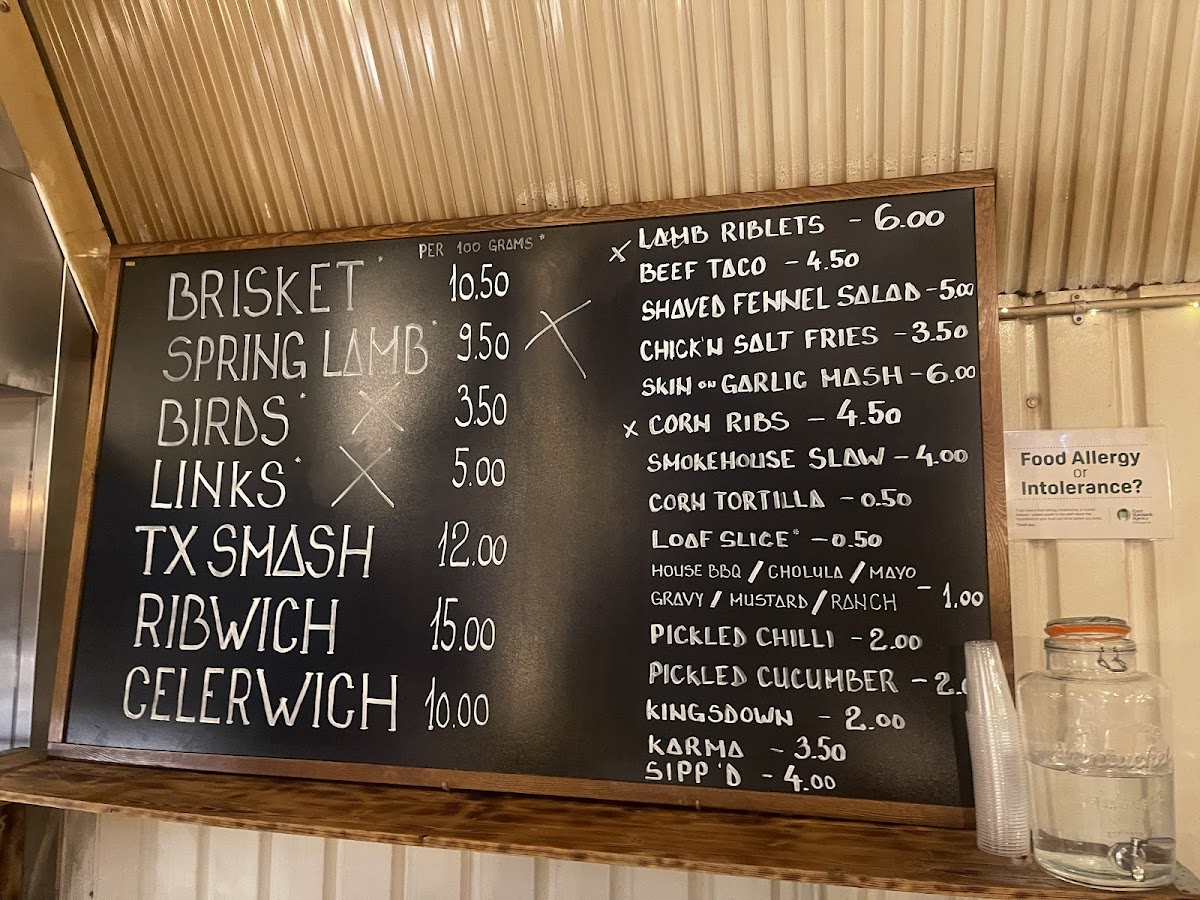 PER 100 GRAMS*
BRISKET* 10.50
SPRING LAMB* 9.50 X
BIRDS* X 3.50
LINKS* X 5.00
TX SMASH 12.00
RIBWICH 15.00
CELERWICH 10.00
X LAMB RIBLETS - 6.00
BEEF TACO - 4.50
SHAVED FENNEL SALAD - 5.00
CHICK'N SALT FRIES - 3.50
SKIN ON GARLIC MASH - 6.00
X CORN RIBS - 4.50
SMOKEHOUSE SLAW - 4.00
CORN TORTILLA - 0.50
LOAF SLICE* - 0.50
HOUSE BBQ / CHOLULA / MAYO
GRAVY / MUSTARD / RANCH - 1.00
PICKLED CHILLI - 2.00
PICKLED CUCUMBER - 2.0
KINGSDOWN - 2.00
KARMA - 3.50
SIPP'D - 4.00
Food Allergy
or
Intolerance?
Food
Standards
Agency